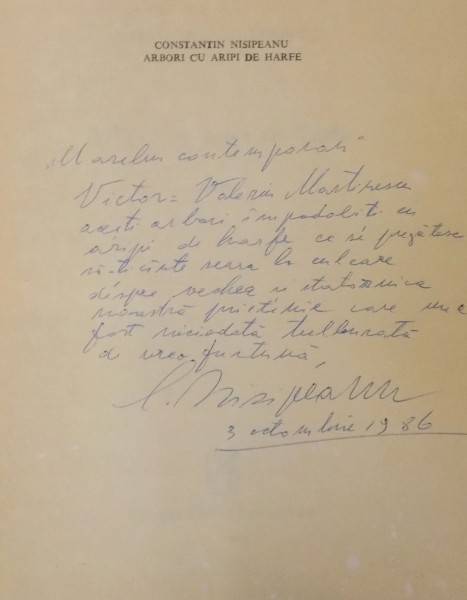 CONSTANTIN NISIPEANU
ARBORI CU ARIPI DE HARFE
"Marelui contemporan"
Victor = Valeriu Martinescu
acești arbori împodobiți cu
aripi de harfe ce se pregătesc
să-ți cînte seara la culcare
despre vechea și statornica
noastră prietenie care n-a
fost niciodată tulburată
de vreo furtună,
C. Nisipeanu
3 octombrie 1986